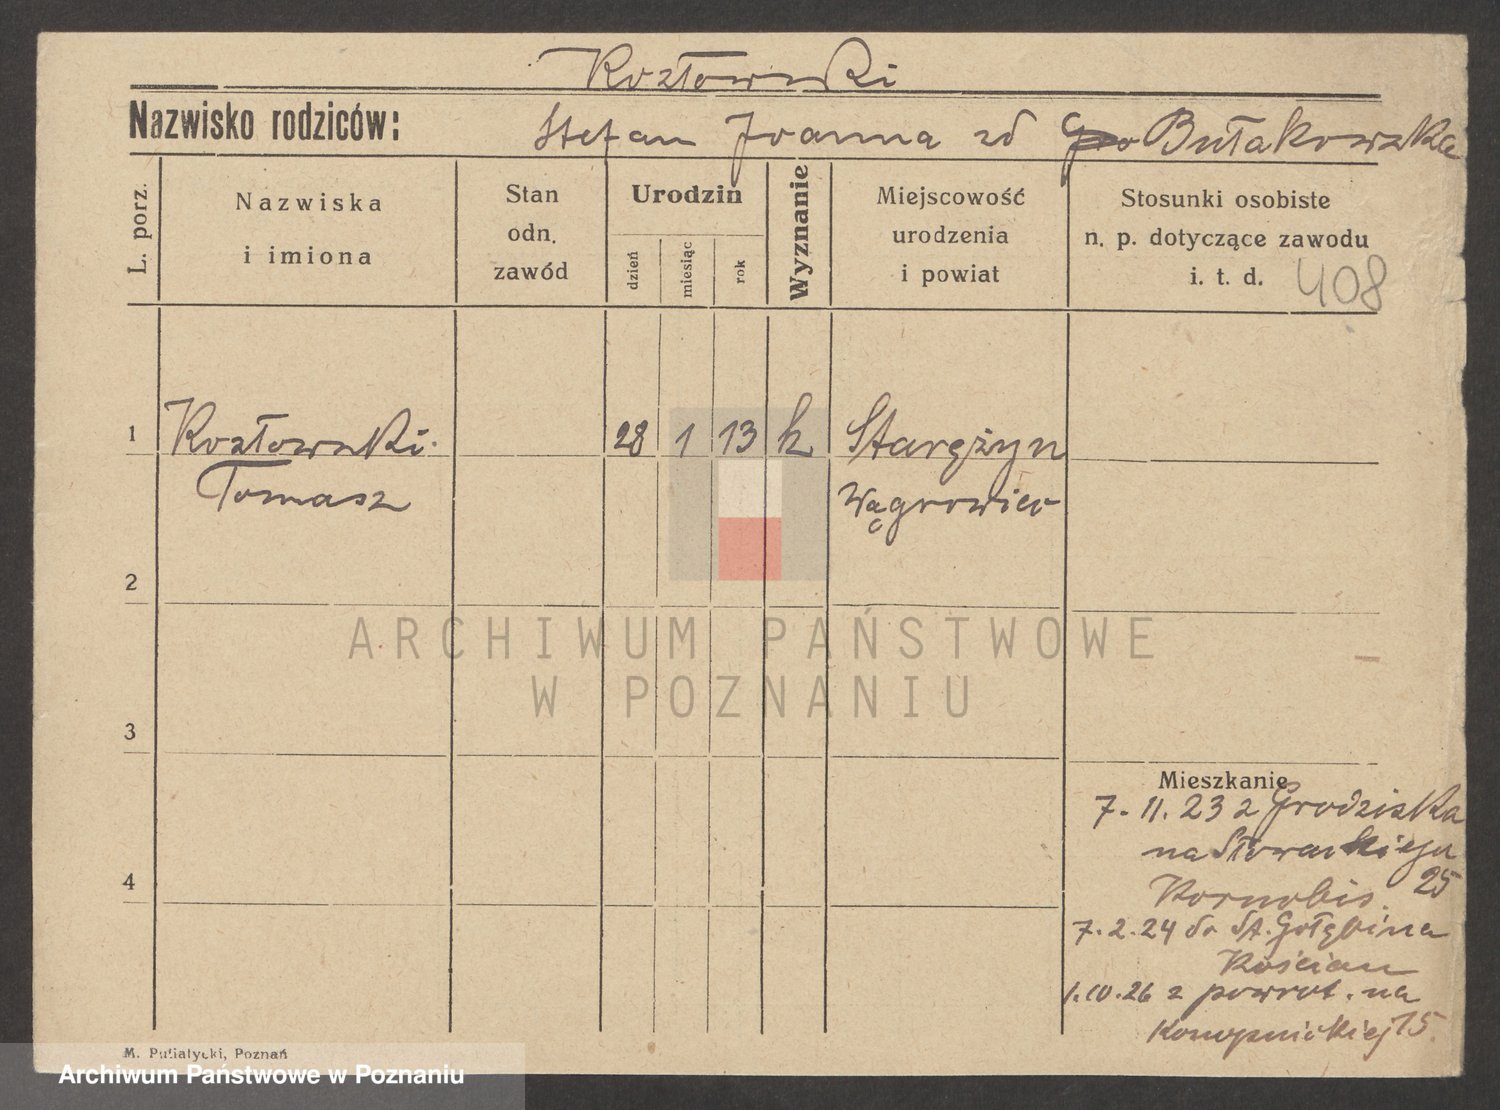 Kozłowski
Nazwisko rodziców: Stefan Joanna zd Bułakowska
L. porz.
Nazwiska i imiona
Stan odn. zawód
Urodzin
dzień
miesiąc
rok
Wyznanie
Miejscowość urodzenia i powiat
Stosunki osobiste n. p. dotyczące zawodu i. t. d.
408
1 Kozłowski 28 1 13 k Starężyn
Tomasz Wągrowiec
2
3
4
ARCHIWUM PAŃSTWOWE
W POZNANIU
Mieszkanie
7. 11. 23 z Grodziska
na Słowackiego
25
Kornobis.
7. 2. 24 do St. Gołębina
Kościan
1. 10. 26 z powrot. na
Konopnickiej 15.
M. Putiatycki, Poznań
Archiwum Państwowe w Poznaniu